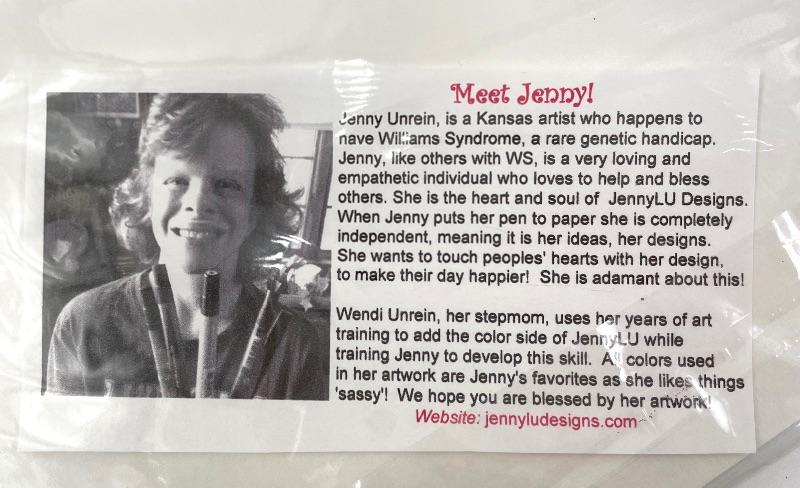 Meet Jenny!
Jenny Unrein, is a Kansas artist who happens to
have Williams Syndrome, a rare genetic handicap.
Jenny, like others with WS, is a very loving and
empathetic individual who loves to help and bless
others. She is the heart and soul of JennyLU Designs.
When Jenny puts her pen to paper she is completely
independent, meaning it is her ideas, her designs.
She wants to touch peoples' hearts with her design,
to make their day happier! She is adamant about this!
Wendi Unrein, her stepmom, uses her years of art
training to add the color side of JennyLU while
training Jenny to develop this skill. All colors used
in her artwork are Jenny's favorites as she likes things
'sassy'! We hope you are blessed by her artwork!
Website: jennyludesigns.com